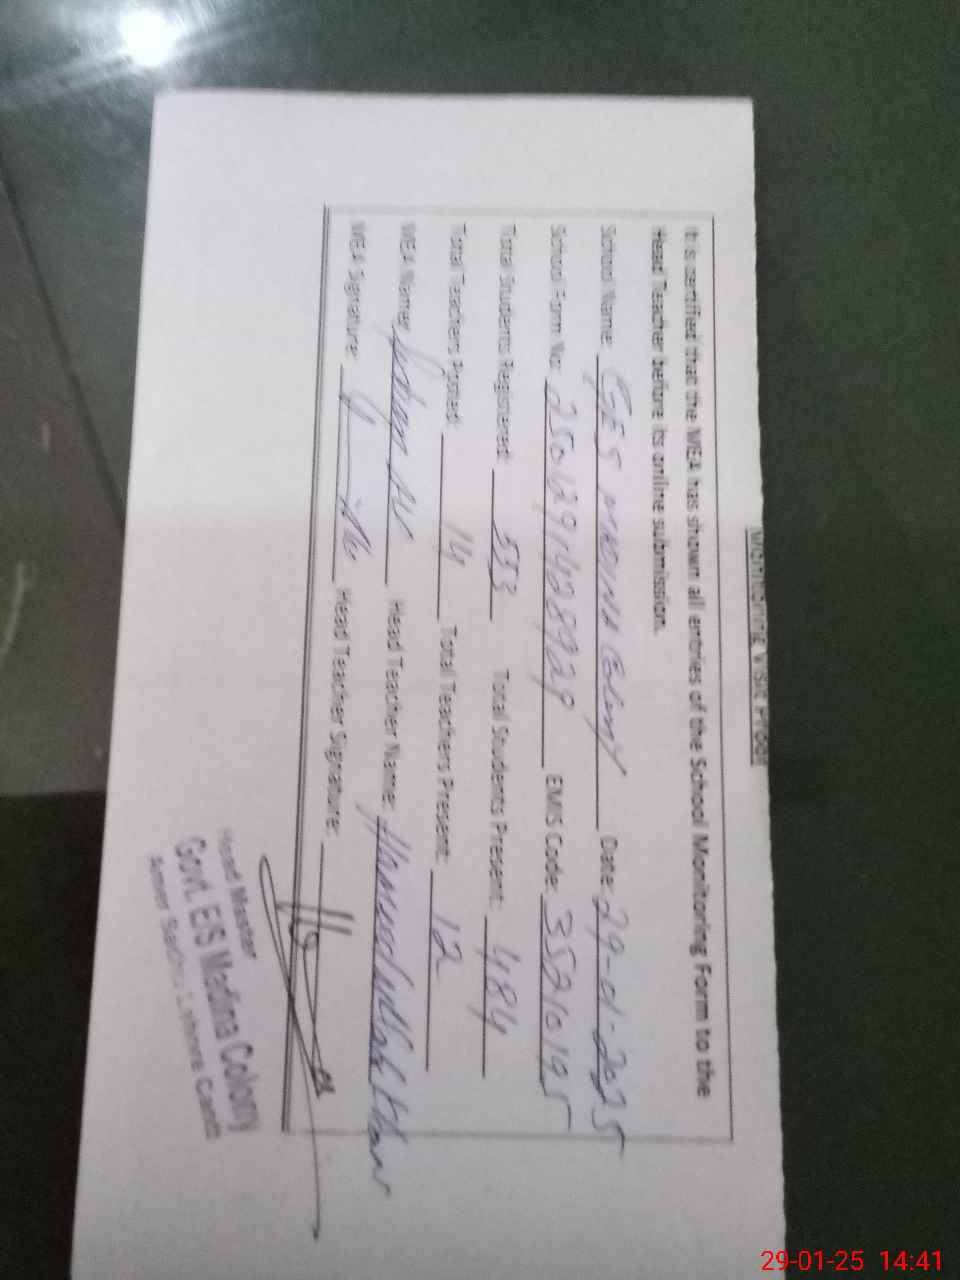 Monitoring Visit Proof
It is certified that the MEA has shown all entries of the School Monitoring Form to the
Head Teacher before its online submission.
School Name: GES MADINA Colony Date: 29-01-2025
School Form No: 250129142 8929 EMIS Code: 35210195
Total Students Registered: 553 Total Students Present: 484
Total Teachers Posted: 14 Total Teachers Present: 12
MEA Name: Head Teacher Name: Hameedullah Khan
MEA Signature: Head Teacher Signature:
Head Master
Govt. E/S Madina Colony
Lahore Cantt
29-01-25 14:41